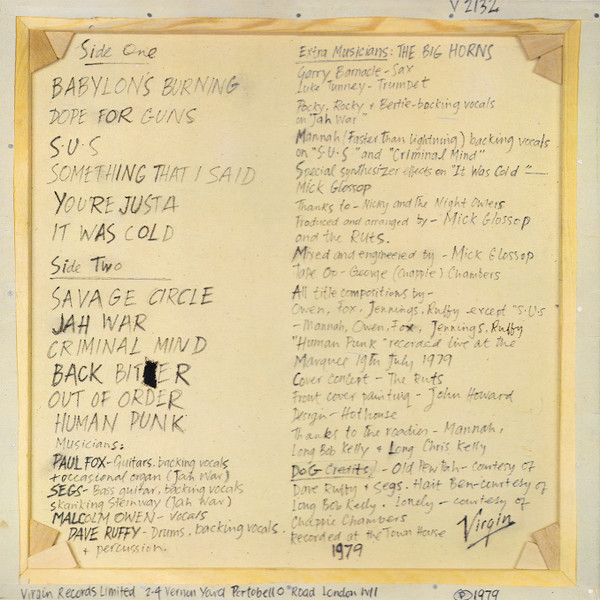 V2132
Side One
BABYLON'S BURNING
DOPE FOR GUNS
S·U·S
SOMETHING THAT I SAID
YOU'RE JUSTA
IT WAS COLD
Side Two
SAVAGE CIRCLE
JAH WAR
CRIMINAL MIND
BACK BITER
OUT OF ORDER
HUMAN PUNK
Musicians:
PAUL FOX - Guitars, backing vocals
+ occasional organ (Jah War)
SEGS - Bass guitar, backing vocals
skanking Steinway (Jah War)
MALCOLM OWEN - Vocals
DAVE RUFFY - Drums, backing vocals
+ percussion.
Extra Musicians: THE BIG HORNS
Garry Barnacle - Sax
Luke Tunney - Trumpet
Pocky, Rocky + Bertie - backing vocals
on "Jah War"
Mannah (Faster than lightning) backing vocals
on "S·U·S" and "Criminal Mind"
Special synthesizer effects on "It Was Cold" -
Mick Glossop
Thanks to - Nicky and The Night Owlers
Produced and arranged by - Mick Glossop
and the Ruts.
Mixed and engineered by - Mick Glossop
Tape Op - George (Chappie) Chambers
All title compositions by -
Owen, Fox, Jennings, Ruffy except "S·U·S
- Mannah, Owen, Fox, Jennings, Ruffy
"Human Punk" recorded live at the
Marquee 19th July 1979
Cover concept - The Ruts
Front cover painting - John Howard
Design - Hothouse
Thanks to the roadies - Mannah,
Long Bob Kelly + Long Chris Kelly
DoG Credits) - Old Pew Tah - courtesy of
Dave Ruffy + Segs. Hait Ben - courtesy of
Long Bob Kelly. Lonely - courtesy of
Chappie Chambers
Recorded at the Town House
1979
Virgin
Virgin Records Limited 2-4 Vernon Yard Portobello Road London W11
Ⓟ©1979